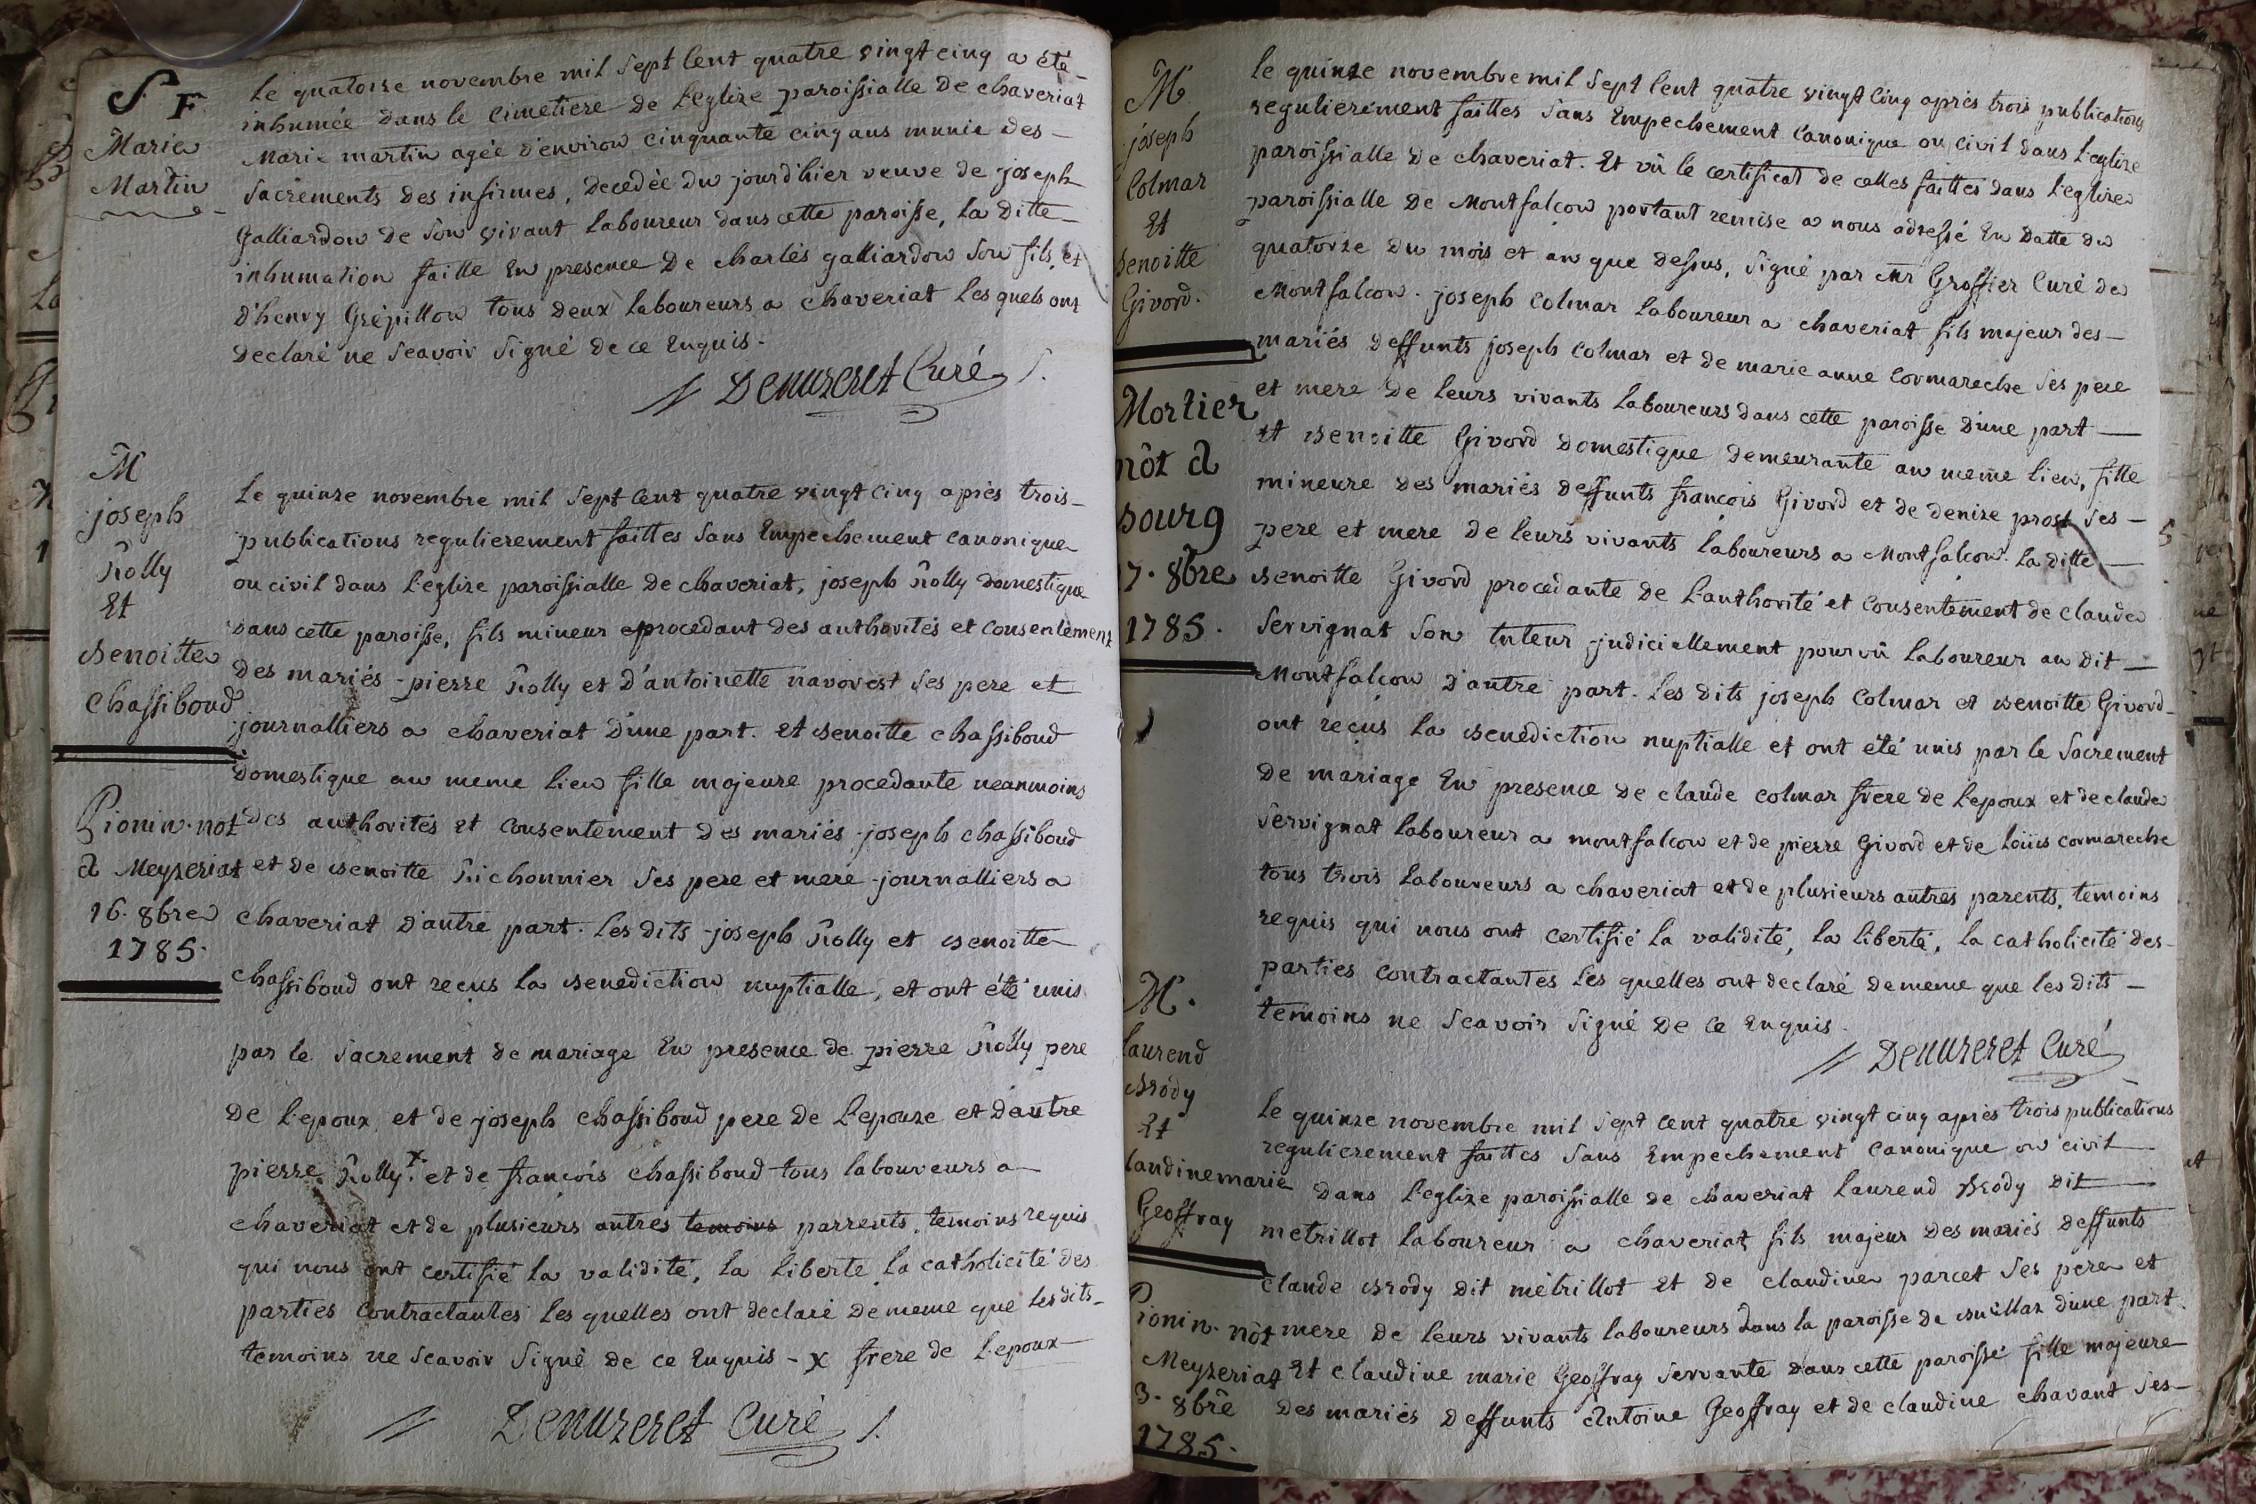 S F
Marie
Martin
le quatorze novembre mil sept cent quatre vingt cinq a été
inhumée dans le cimetiere de l'eglize paroissialle de chaveriat
Marie martin agée d'environ cinquante cinq ans munie des
sacrements des infirmes, decedée du jourd'hier veuve de joseph
galliardon de son vivant laboureur dans cette paroisse, la ditte
inhumation faitte en presence de charles galliardon son fils, et
d'henry Grépillon tous deux laboureurs a chaveriat les quels ont
declaré ne sçavoir signé de ce enquis.
Denuzeret Curé
M
joseph
Rolly
Et
Benoitte
Chassiboud
Pionin not
a Meyzeriat
16. 8bre
1785.
le quinze novembre mil sept cent quatre vingt cinq après trois
publications regulierement faittes sans empechement canonique
ou civil dans l'eglize paroissialle de chaveriat, joseph Rolly domestique
dans cette paroisse, fils mineur procedant des authorités et consentement
des mariés pierre Rolly et d'antoinette navoret ses pere et
journalliers a chaveriat d'une part. Et Benoitte chassiboud
domestique au meme lieu fille majeure procedante neanmoins
des authorités et consentement des mariés joseph chassiboud
et de Benoitte Richonnier ses pere et mere journalliers a
chaveriat d'autre part. Les dits joseph Rolly et Benoitte
chassiboud ont reçus la Benediction nuptialle, et ont été unis
par le sacrement de mariage en presence de pierre Rolly pere
de l'epoux, et de joseph chassiboud pere de l'epouze et d'autre
pierre Rolly x et de françois chassiboud tous laboureurs a
chaveriat et de plusieurs autres temoins parrents, temoins requis
qui nous ont certifié la validité, la liberté, la catholicité des
parties contractantes les quelles ont declaré de meme que les dits
temoins ne sçavoir signé de ce enquis - x frere de l'epoux
Denuzeret Curé
M
joseph
Colmar
Et
Benoitte
Givord.
Mortier
nôt a
Bourg
7. 8bre
1785.
le quinze novembre mil sept cent quatre vingt cinq après trois publications
regulierement faittes sans empechement canonique ou civil dans l'eglize
paroissialle de chaveriat. Et vû le certificat de celles faittes dans l'eglize
paroissialle de Montfalcon portant remise a nous adressé en datte du
quatorze du mois et an que dessus, signé par mr Groffier Curé de
Montfalcon. joseph colmar laboureur a chaveriat fils majeur des
mariés deffunts joseph colmar et de marie anne cormareche ses pere
et mere de leurs vivants laboureurs dans cette paroisse d'une part
et Benoitte Givord domestique demeurante au meme lieu, fille
mineure des mariés deffunts françois Givord et de denize prost ses
pere et mere de leurs vivants laboureurs a Montfalcon. la ditte
Benoitte Givord procedante de l'authorité et consentement de claude
Servignat son tuteur judiciellement pourvû laboureur au dit
Montfalcon d'autre part. Les dits joseph colmar et Benoitte Givord
ont reçus la Benediction nuptialle et ont été unis par le sacrement
de mariage en presence de claude colmar frere de l'epoux et de claude
servignat laboureur a montfalcon et de pierre Givord et de loüis cormareche
tous trois laboureurs a chaveriat et de plusieurs autres parents, temoins
requis qui nous ont certifié la validité, la liberté, la catholicité des
parties contractantes les quelles ont declaré de meme que les dits
temoins ne sçavoir signé de ce enquis.
Denuzeret Curé
M.
laurend
Brody
Et
laudine marie
Geoffray
Pionin. nôt
Meyzeriat
3. 8bre
1785.
le quinze novembre mil sept cent quatre vingt cinq après trois publications
regulierement faittes sans empechement canonique ou civil
dans l'eglize paroissialle de chaveriat laurend Brody dit
metrillot laboureur a chaveriat fils majeur des mariés deffunts
claude Brody dit métrillot et de claudine parcet ses pere et
mere de leurs vivants laboureurs dans la paroisse de Buellaz d'une part.
Et claudine marie Geoffray servante dans cette paroisse fille majeure
des mariés deffunts Antoine Geoffray et de claudine chavant ses